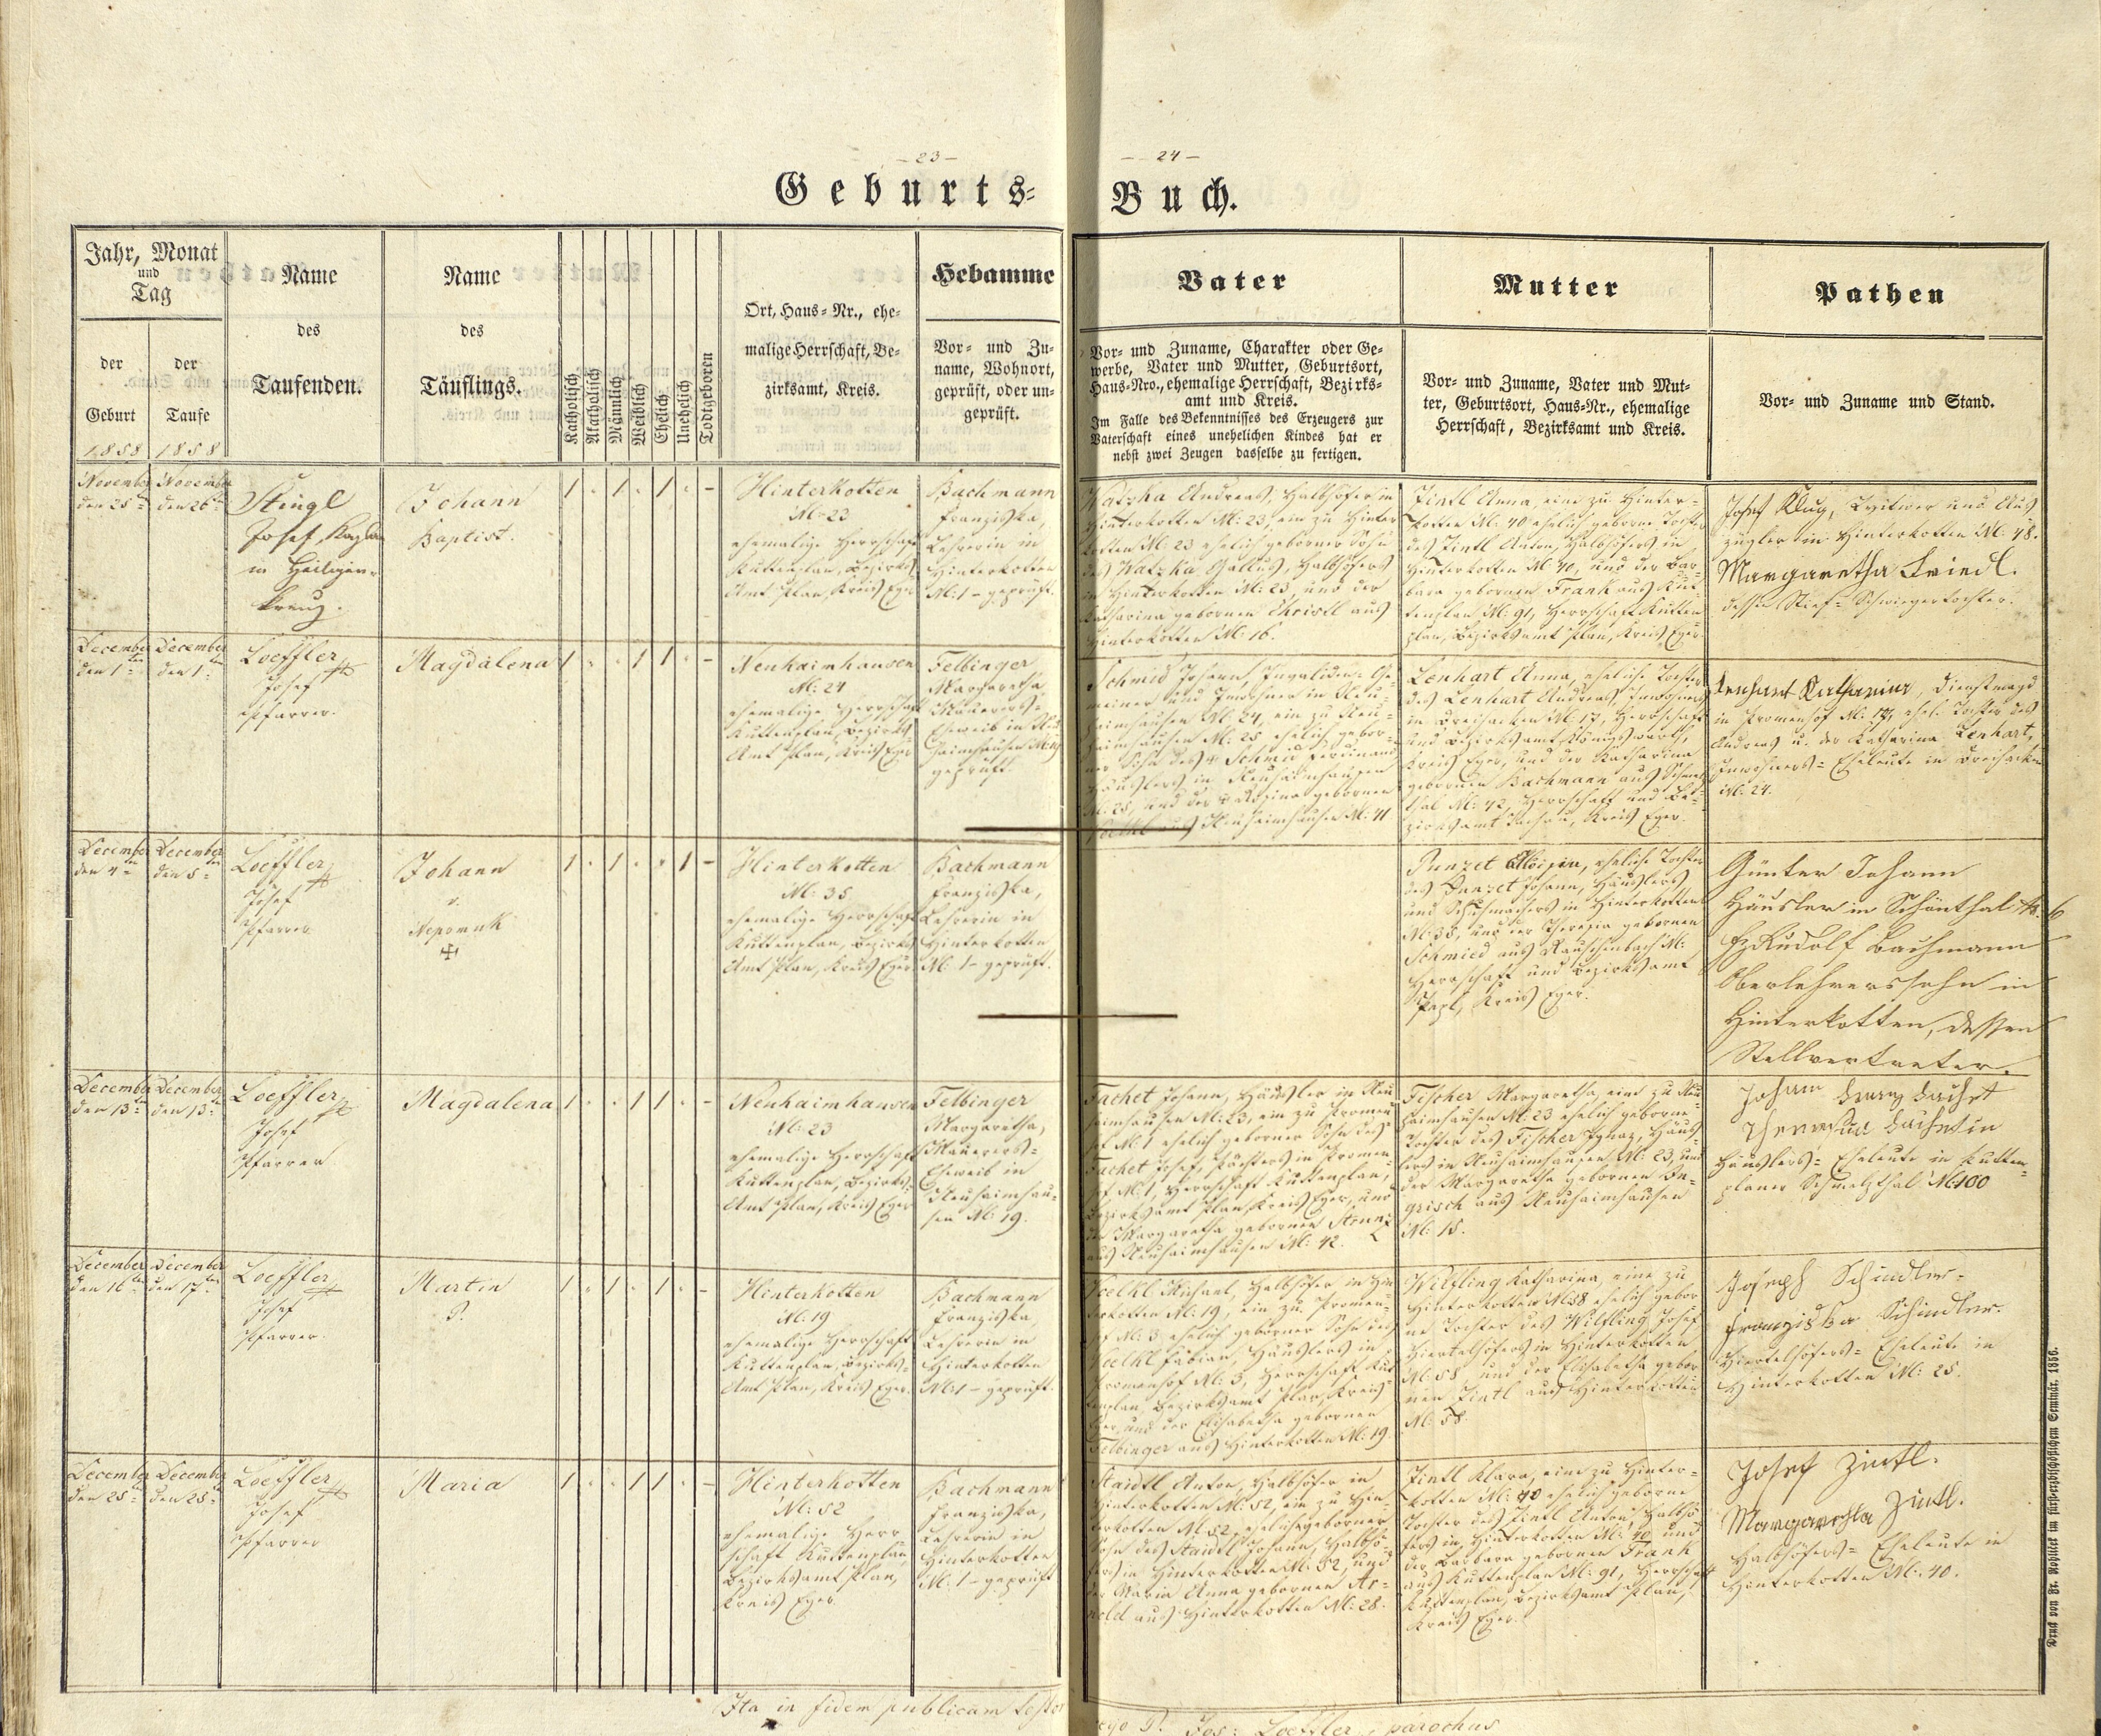 – 23 –
– 24 –
Geburts-
Buch.
Jahr, Monat
und
Tag
der
Geburt
1858
der
Taufe
1858
Name
des
Taufenden.
Name
des
Täuflings.
Katholisch
Akatholisch
Männlich
Weiblich
Ehelich
Unehelich
Todtgeboren
Ort, Haus-Nr., ehe-
malige Herrschaft, Be-
zirksamt, Kreis.
Hebamme
Vor- und Zu-
name, Wohnort,
geprüft, oder un-
geprüft.
Vater
Vor- und Zuname, Charakter oder Ge-
werbe, Vater und Mutter, Geburtsort,
Haus-Nro., ehemalige Herrschaft, Bezirks-
amt und Kreis.
Im Falle des Bekenntnisses des Erzeugers zur
Vaterschaft eines unehelichen Kindes hat er
nebst zwei Zeugen dasselbe zu fertigen.
Mutter
Vor- und Zuname, Vater und Mut-
ter, Geburtsort, Haus-Nr., ehemalige
Herrschaft, Bezirksamt und Kreis.
Pathen
Vor- und Zuname und Stand.
November
den 25ten
November
den 26ten
Stingl
Josef, Kaplan
in Heiligen-
kreuz.
Johann
Baptist.
Hinterkotten
N: 23
ehemalige Herrschaft
Kuttenplan, Bezirks-
Amt Plan, Kreis Eger
Bachmann
Franziska,
Lehrerin in
Hinterkotten
N: 1 – geprüft.
Watzka Andreas, Halbhöfer in
Hinterkotten N: 23, ein zu Hinter
kotten N: 23 ehelich geborner Sohn
des Watzka Gallus, Halbhöfers
in Hinterkotten N: 23, und der
Katharina gebornen Christl aus
Hinterkotten N: 16.
Zintl Anna, eine zu Hinter-
kotten N: 40 ehelich geborne Tochter
des Zintl Anton, Halbhöfers in
Hinterkotten N: 40, und der Bar-
bara gebornen Frank aus Kut-
tenplan N: 91, Herrschaft Kutten-
plan, Bezirksamt Plan, Kreis Eger
Josef Klug, Wittwer und Aus
zügler in Hinterkotten N: 48.
Margaretha Friedl.
dessen Stief-Schwiegertochter.
December
den 1ten
December
den 1ten
Loeffler
Josef
Pfarrer.
Magdalena
Neuhaimhausen
N: 24
ehemalige Herrschaft
Kuttenplan, Bezirks-
Amt Plan, Kreis Eger
Felbinger
Margaretha,
Maurers-
Eheweib in Neu
haimhausen N: 19
geprüft.
Schmid Johann, Invaliden-Ge-
meiner und Inwohner in Neu-
haimhausen N: 24, ein zu Neu-
haimhausen N: 25 ehelich gebor-
ner Sohn des Schmid Ferdinand
Häuslers in Neuhaimhausen
N: 25, und der Rosina gebornen
Voelkl aus Neuhaimhausen N: 41
Lenhart Anna, eheliche Tochter
des Lenhart Andreas Inwohners
in Dreihacken N: 17, Herrschaft
und Bezirksamt Königswarth,
Kreis Eger, und der Katharina
gebornen Bachmann aus Schmelz
thal N: 42, Herrschaft und Be-
zirksamt Tachau, Kreis Eger.
Lenhart Katharina, Dienstmagd
in Promenhof N: 19, ehel. Tochter des
Andreas u. der Katharina Lenhart,
Inwohners-Eheleute in Dreihacken
N: 24.
December
den 4ten
December
den 5ten
Loeffler
Josef
Pfarrer
Johann
v.
Nepomuk
Hinterkotten
N: 35
ehemalige Herrschaft
Kuttenplan, Bezirks
Amt Plan, Kreis Eger
Bachmann
Franziska,
Lehrerin in
Hinterkotten
N: 1 – geprüft.
Punzet Aloisia, eheliche Tochter
des Punzet Johann, Häuslers
und Schuhmachers in Hinterkotten
N: 35, und der Theresia gebornen
Schmied aus Rauschenbach N:
Herrschaft und Bezirksamt
Tepl, Kreis Eger.
Günter Johann
Häusler in Schönthal N. 6
Rudolf Bachmann
Oberlehrerssohn in
Hinterkotten, dessen
Stellvertreter.
December
den 13ten
December
den 13ten
Loeffler
Josef
Pfarrer
Magdalena
Neuhaimhausen
N: 23
ehemalige Herrschaft
Kuttenplan, Bezirks-
Amt Plan, Kreis Eger
Felbinger
Margaretha,
Maurers-
Eheweib in
Neuhaimhau-
sen N: 19.
Fachet Johann, Häusler in Neu
haimhausen N: 23, ein zu Promen
hof N: 1 ehelich geborner Sohn des
Fachet Josef, Pächters in Promen-
hof N: 1, Herrschaft Kuttenplan,
Bezirksamt Plan, Kreis Eger, und
der Margaretha gebornen Strunz
aus Neuhaimhausen N: 42.
Fischer Margaretha, eine zu Neu
haimhausen N: 23 ehelich geborne
Tochter des Fischer Ignaz, Häus-
lers in Neuhaimhausen N: 23, und
der Margaretha gebornen In-
grisch aus Neuhaimhausen
N: 15.
Häuslers-Eheleute in Kutten-
planer Schmelzthal N: 100
December
den 16ten
December
den 17ten
Loeffler
Josef
Pfarrer.
Martin
P.
Hinterkotten
N: 19
ehemalige Herrschaft
Kuttenplan, Bezirks-
Amt Plan, Kreis Eger.
Bachmann
Franziska,
Lehrerin in
Hinterkotten
N: 1 – geprüft.
Voelkl Michael, Halbhöfer in Hin
terkotten N: 19, ein zu Promen-
hof N: 3 ehelich geborner Sohn des
Voelkl Fabian, Häuslers in
Promenhof N: 3, Herrschaft Kut
tenplan, Bezirksamt Plan, Kreis
Eger, und der Elisabetha gebornen
Felbinger aus Hinterkotten N: 19.
Wilfling Katharina, eine zu
Hinterkotten N: 58 ehelich gebor
ne Tochter des Wilfling Josef
Viertelhöfers in Hinterkotten
N: 58, und der Elisabetha gebor
nen Zintl aus Hinterkotten
N: 58.
Joseph Schindler-
Franziska Schindler.
Viertelhöfers-Eheleute in
Hinterkotten N: 25.
December
den 25ten
December
den 25ten
Loeffler
Josef
Pfarrer
Maria
Hinterkotten
N: 52
ehemalige Herr
schaft Kuttenplan,
Bezirksamt Plan,
Kreis Eger
Bachmann
Franziska,
Lehrerin in
Hinterkotten
N: 1 – geprüft
Staidtl Anton, Halbhöfer in
Hinterkotten N: 52, ein zu Hin-
terkotten N: 52, ehelich geborner
Sohn des Staidtl Johann, Halbhö-
fers in Hinterkotten N: 52, und
der Maria Anna gebornen Ar-
nold aus Hinterkotten N: 28.
Zintl Klara, eine zu Hinter-
kotten N: 40 ehelich geborne
Tochter des Zintl Anton, Halbhö-
fers in Hinterkotten N: 40 und
der Barbara gebornen Frank
aus Kuttenplan N: 91, Herrschaft
Kuttenplan, Bezirksamt Plan,
Kreis Eger.
Josef Zintl.
Margaretha Zintl.
Halbhöfers-Eheleute in
Hinterkotten N: 40.
Ita in fidem publicam testor
ego P. Jos: Loeffler, parochus
Druck von Fr. Rohliček im fürsterzbischöflichem Seminär. 1856.